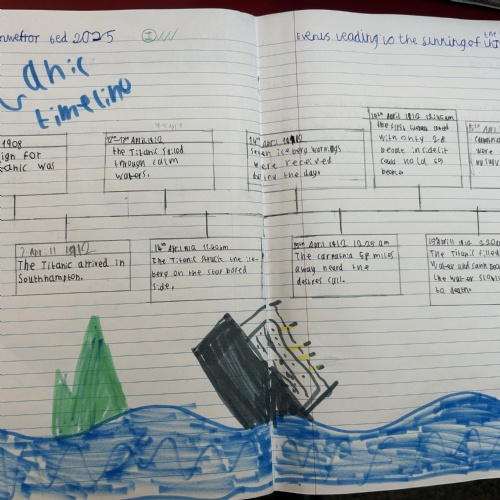 bed 2025
Events leading to the sinning of the
anic
timeline
1908
ign for
anic was
12th-13th April 1912
the Titanic sailed
through calm
waters.
14th April 1912
Seven iceberg warnings
were received
during the day.
15th April 1912 12:45am
the first
with only 28
people inside it
could hold 65
people
were
2 April 1912
The Titanic arrived in
Southhampton.
14th April 1912 11:40pm
The Titanic struck the ice-
berg on the starbored
side.
April 1912 12:25 am
The carpathia 58 miles
away heard the
distres call.
15th April 1912 2:20
The Titanic filled
water and sank
the water
to death.